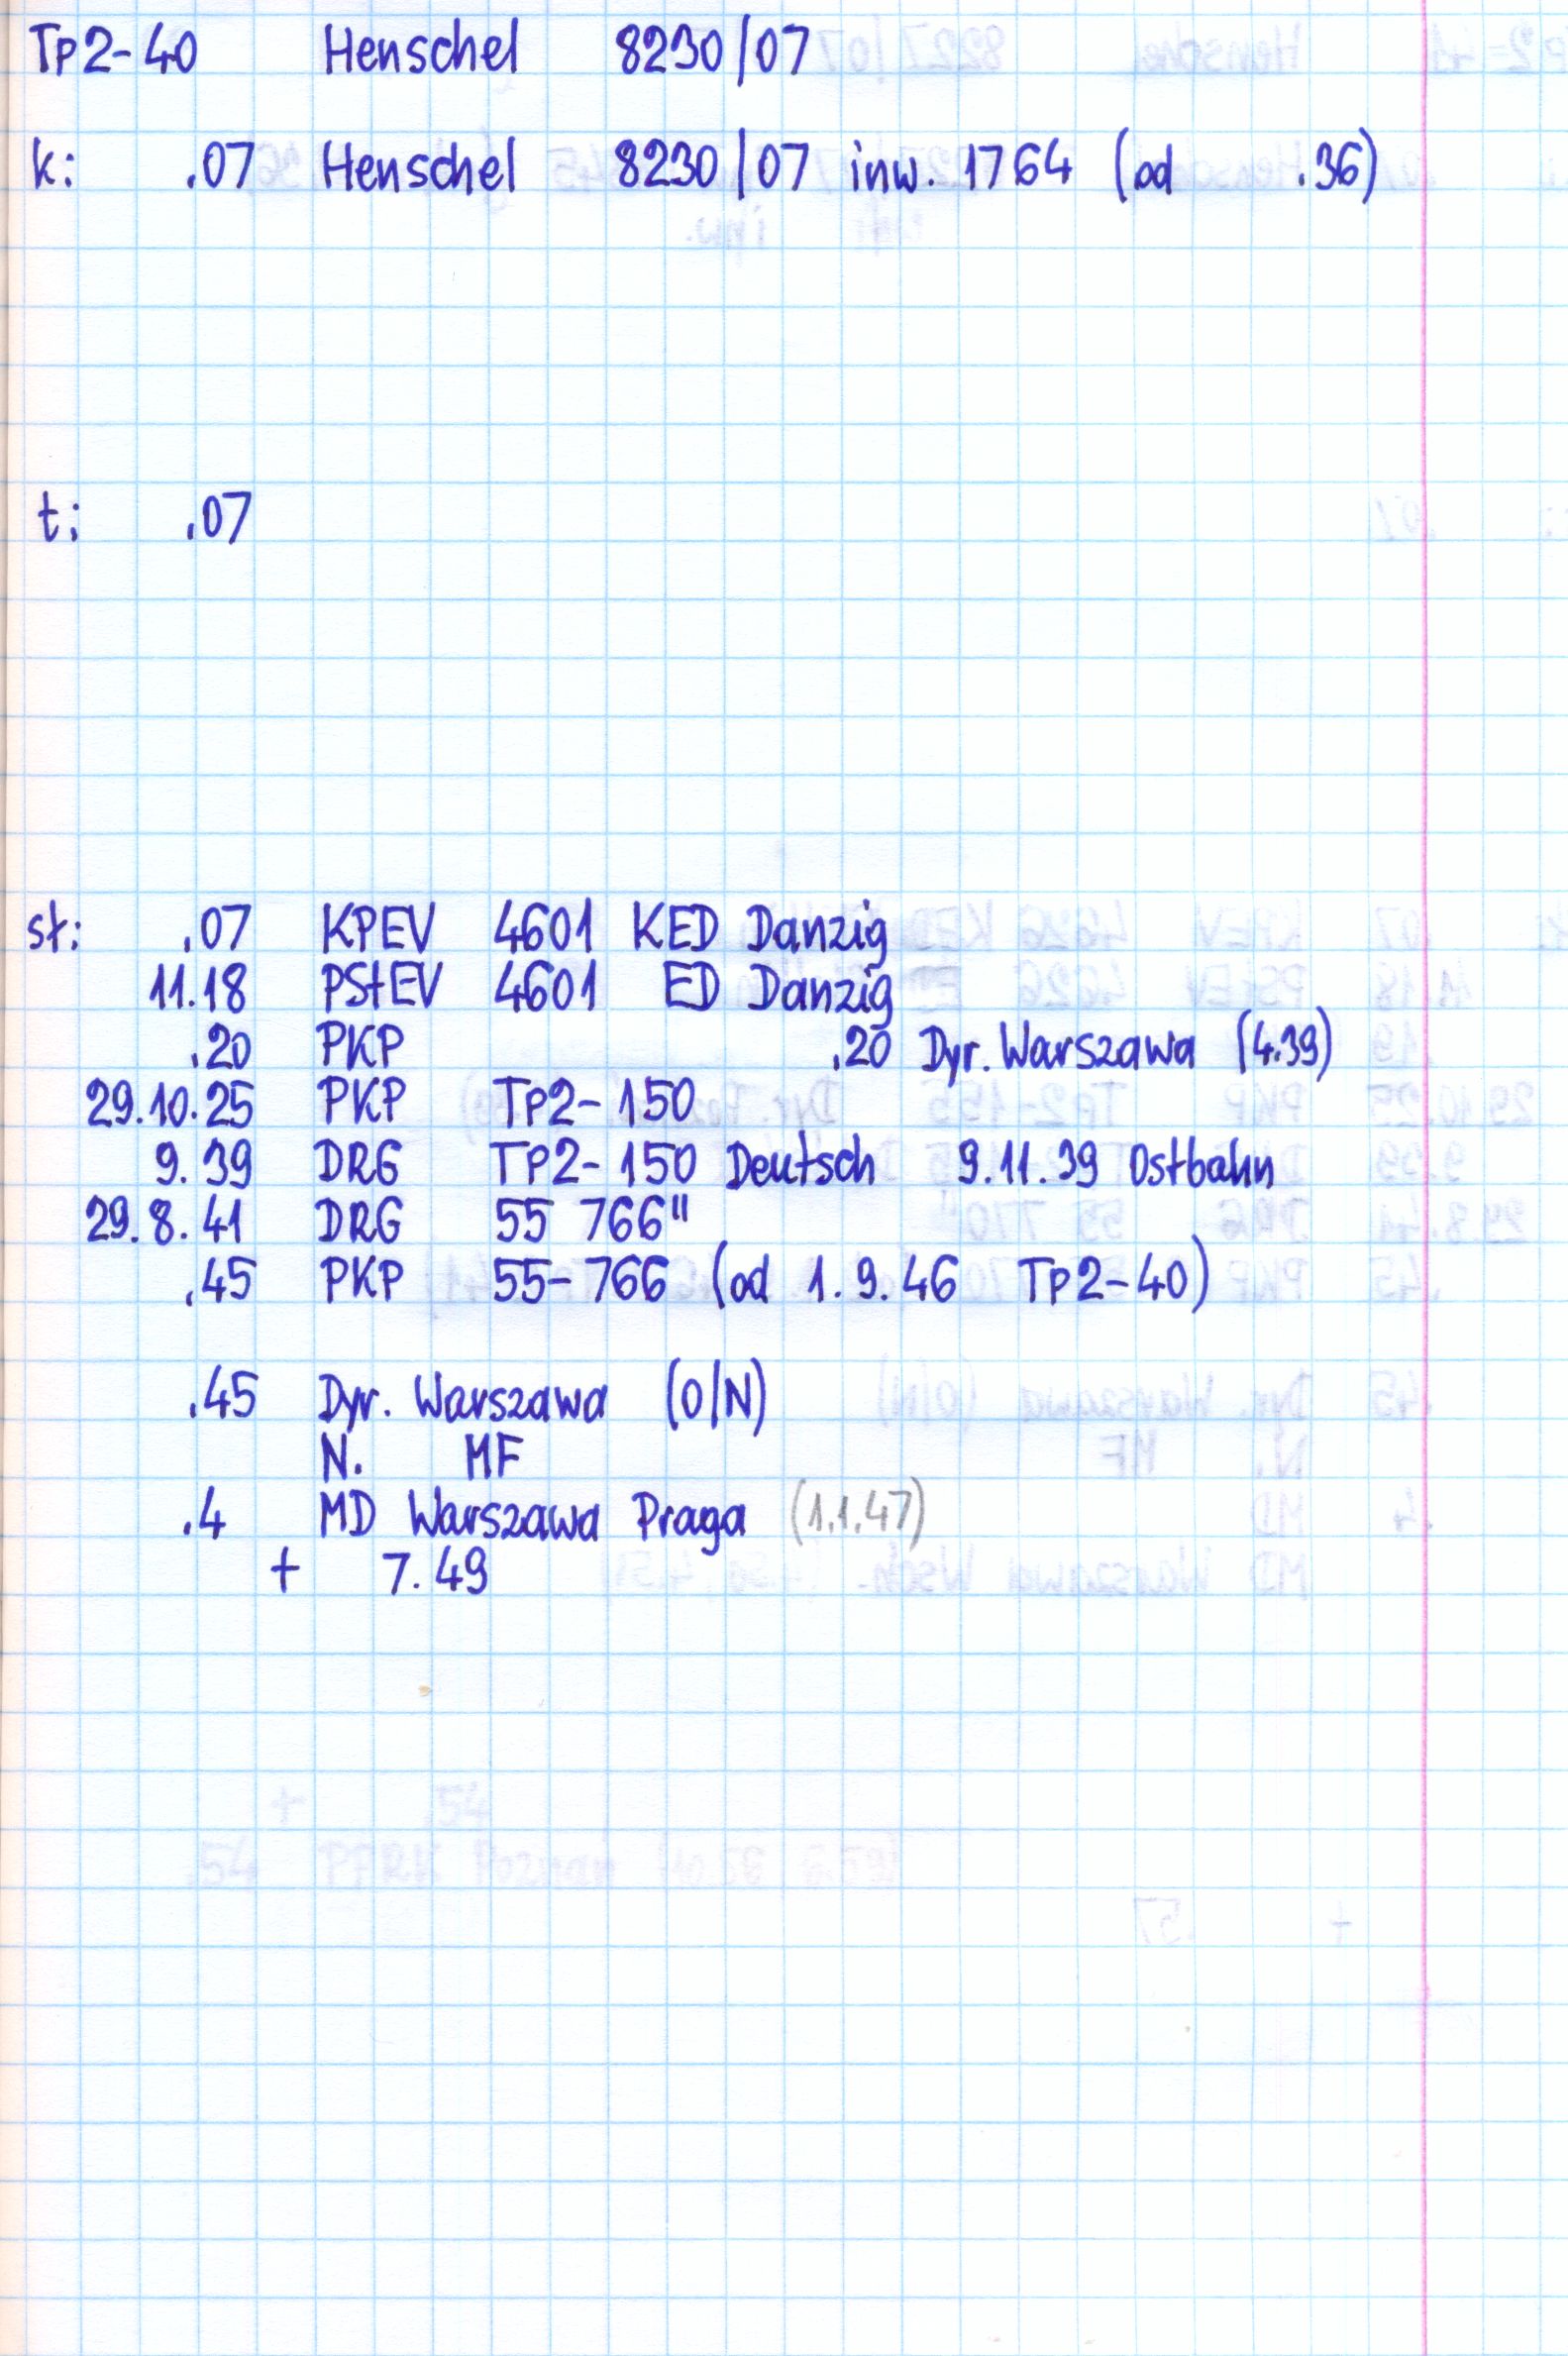 Tp2-40 Henschel 8230/07
k: .07 Henschel 8230/07 inw. 1764 (od .36)
t: .07
st: .07 KPEV 4601 KED Danzig
11.18 PStEV 4601 ED Danzig
.20 PKP .20 Dyr. Warszawa (4.39)
29.10.25 PKP Tp2-150
9.39 DRG Tp2-150 Deutsch 9.11.39 Ostbahn
29.8.41 DRG 55 766"
.45 PKP 55-766 (od 1.9.46 Tp2-40)
.45 Dyr. Warszawa (O/N)
N. MF
.4 MD Warszawa Praga (1.1.47)
+ 7.49